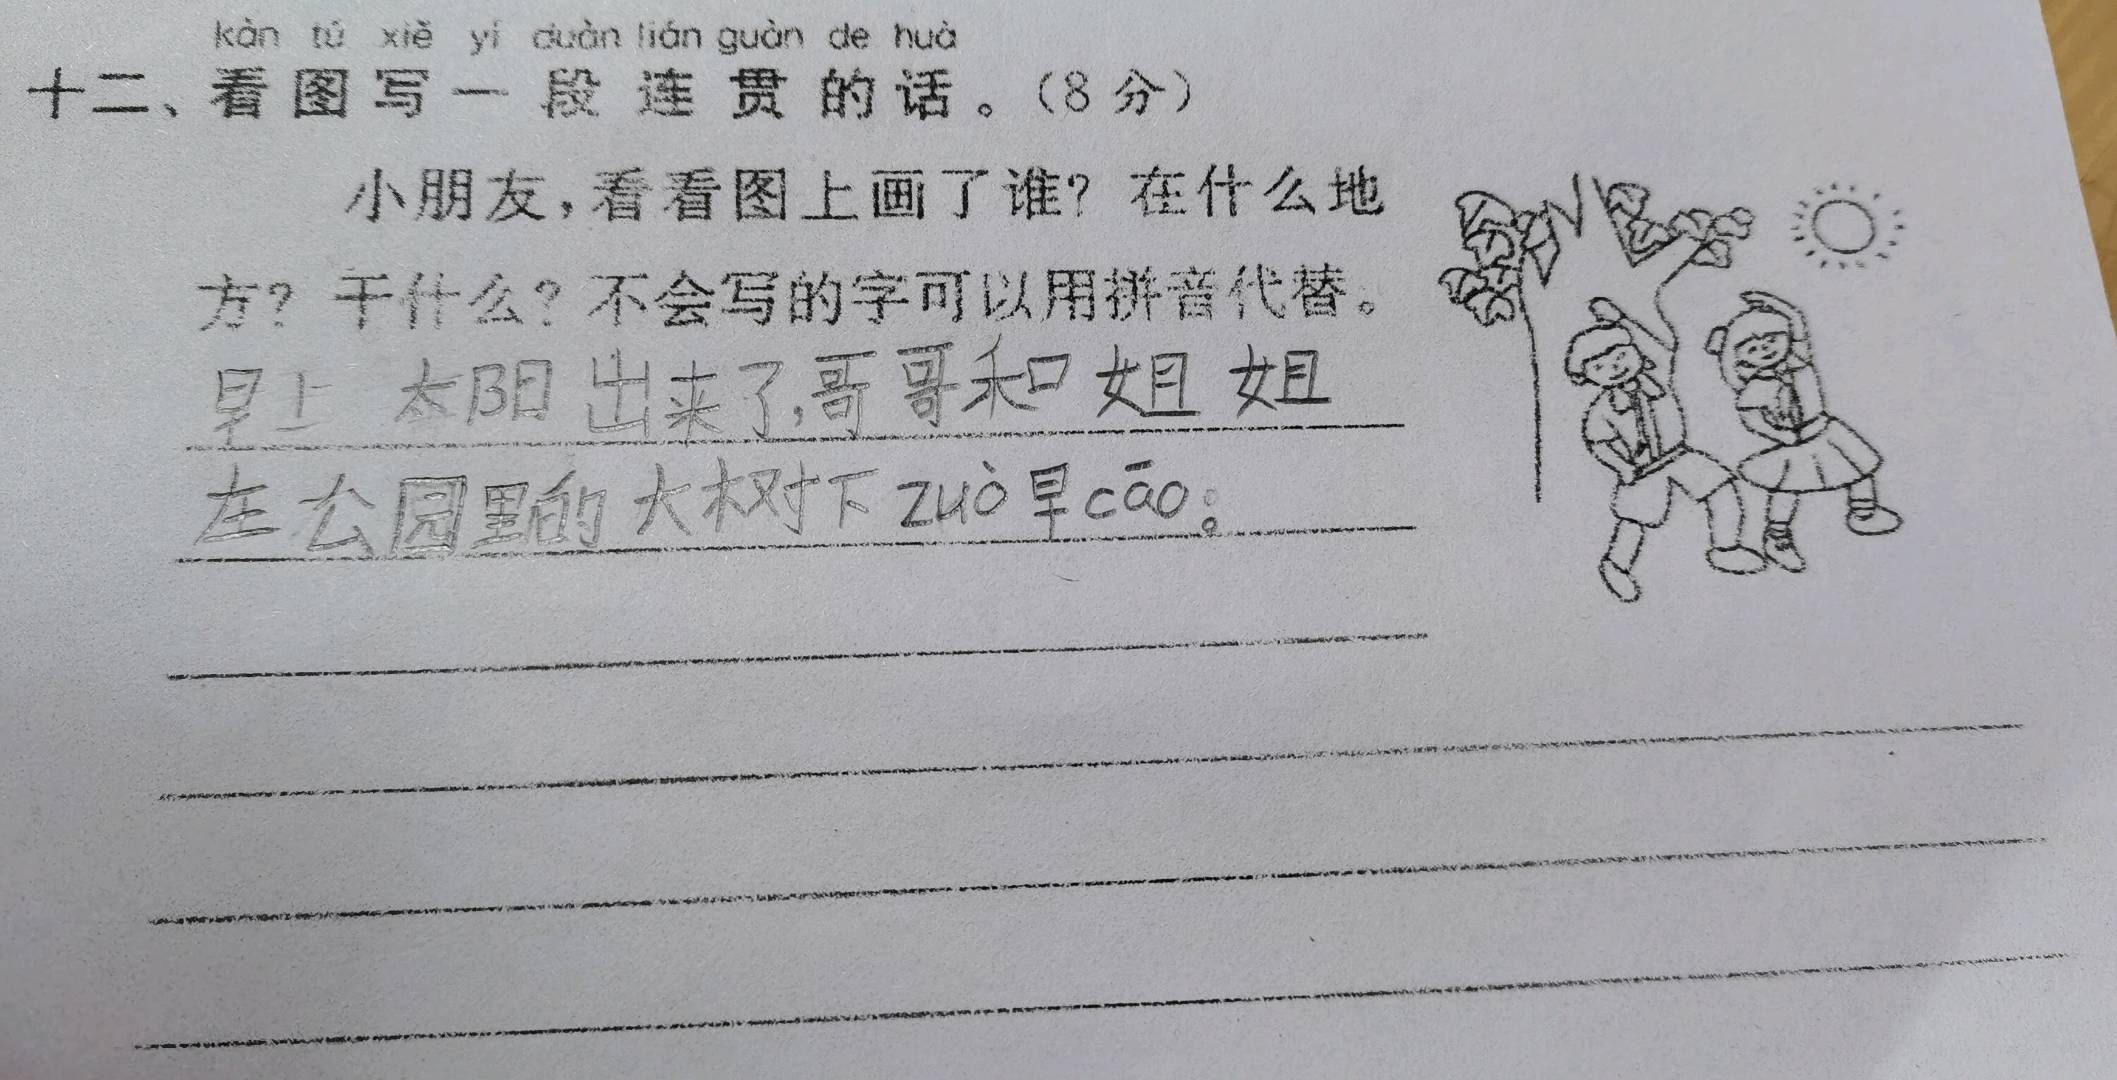 kàn tú xiě yí duàn lián guàn de huà
十二、看图写一段连贯的话。（8分）
小朋友，看看图上画了谁？在什么地
方？干什么？不会写的字可以用拼音代替。
早上 太阳出来了，哥哥和姐姐
在公园里的大树下zuò早cāo。